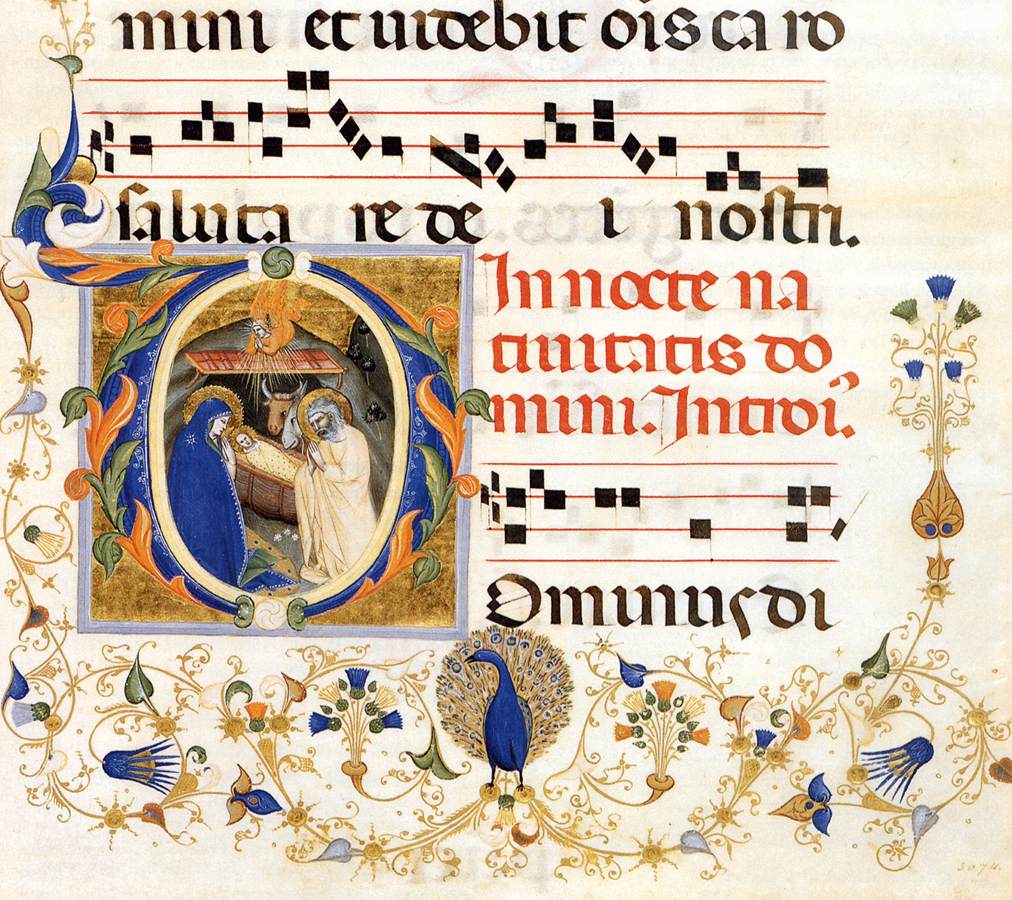 mini et uidebit oīs caro
saluta re de i nostri.
In nocte na
tiuitatis do
mini. Introi̾.
Ominus di
5074.